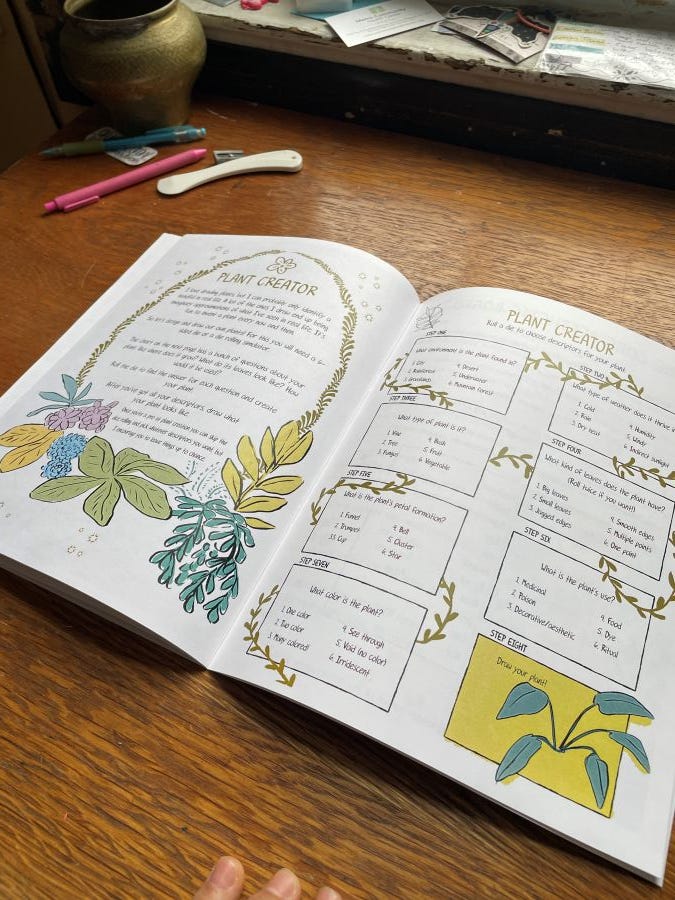 PLANT CREATOR
I love drawing plants, but I can probably only identify a
handful in real life. A lot of the ones I draw end up being
imaginary representations of what I've seen in real life. It's
fun to invent a plant every now and then.
So let's design and draw our own plants! For this you will need a six-
sided die or a die rolling simulator.
The chart on the next page has a bunch of questions about your
plant like where does it grow? What do its leaves look like? How
would it be used?
Roll the die to find the answer for each question and create
your plant.
After you've got all your descriptors, draw what
your plant looks like.
PLANT CREATOR
Roll a die to choose descriptors for your plant.
STEP ONE
What environment is the plant found in?
1. City
2. Rainforest
3. Grasslands
4. Desert
5. Underwater
6. Mountain forest
STEP TWO
What type of weather does it thrive
1. Cold
2. Rain
3. Dry heat
4. Humidity
5. Windy
6. Indirect sunlight
STEP THREE
What type of plant is it?
1. Vine
2. Tree
3. Fungus
4. Bush
5. Fruit
6. Vegetable
STEP FOUR
What kind of leaves does the plant have?
(Roll twice if you want!)
1. Big leaves
2. Small leaves
3. Jagged edges
4. Smooth edges
5. Multiple points
6. One point
STEP FIVE
What is the plant's petal formation?
1. Funnel
2. Trumpet
3. Cup
4. Bell
5. Cluster
6. Star
STEP SIX
What is the plant's use?
1. Medicinal
2. Poison
3. Decorative/aesthetic
4. Food
5. Dye
6. Ritual
STEP SEVEN
What color is the plant?
1. One color
2. Two color
3. Many colored!
4. See through
5. Void (no color)
6. Irridescent
STEP EIGHT
Draw your plant!